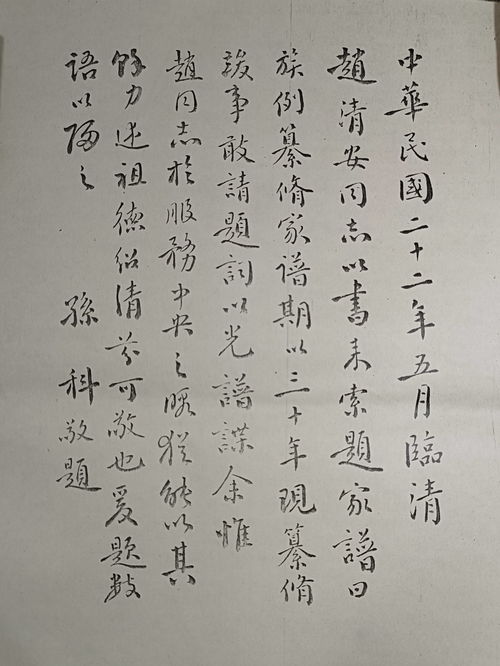 中華民國二十二年五月臨清
趙清安同志以書來索題家譜曰
族例纂脩家譜期以三十年現纂脩
竣事敢請題詞以光譜諜余惟
趙同志於服務中央之暇猶能以其
餘力述祖德紹清芬可敬也爰題數
語以歸之
孫科敬題